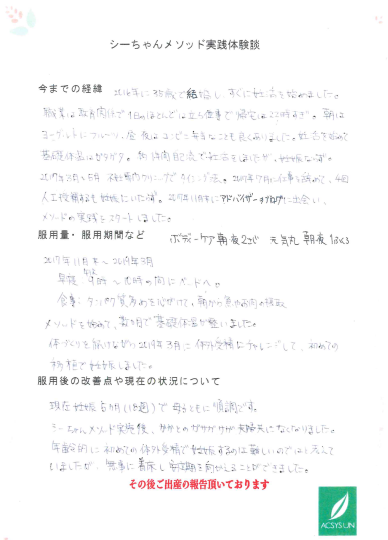 シーちゃんメソッド実践体験談
今までの経緯 2016年に35歳で結婚し、すぐに妊活を始めました。
職業は教育関係で1日のほとんどは立ち仕事で帰宅は22時すぎ。朝は
ヨーグルトにフルーツ、昼夜はコンビニ弁当なことも良くありました。妊活を始めて
基礎体温はガタガタ。自己流で妊活をしましたが、妊娠ならず。
人工授精するも妊娠にいたらず。2017年11月末にアドバイザーのブログに出会い、
メソッドの実践をスタートしました。
服用量・服用期間など ボディーケア朝夜2コ 元気丸 朝夜
2017年11月末〜2019年3月
早寝 の間にベッドへ。
食事:タンパク質多めを心がけて、朝から魚やお肉の摂取
メソッドを始めて、数ヶ月で基礎体温が整いました。
体づくりを続けながら2019年3月に体外受精にチャレンジして、初めての
移植で妊娠しました。
服用後の改善点や現在の状況について
現在妊娠5ヶ月(18週)で母子ともに順調です。
シーちゃんメソッド実践後、かかとのガサガサが なくなりました。
年齢的に初めての体外受精で妊娠するのは難しいのではと考えて
いましたが、無事に着床し安定期を向かえることができました。
その後ご出産の報告頂いております
ACSYSUN